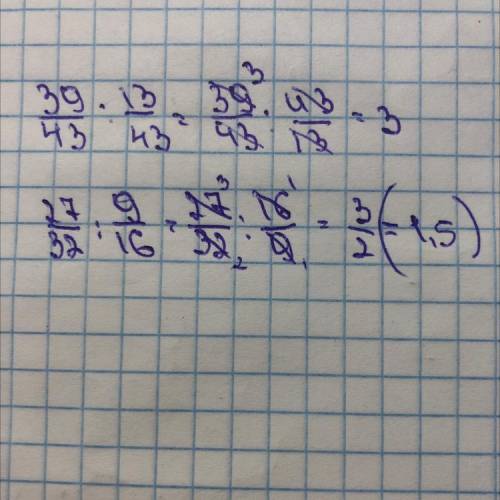 39/43 : 13/43 = 39³/43 · 43/13 = 3
27/32 : 9/16 = 27³/32₂ · 16¹/9₁ = 3/2 (= 1,5)